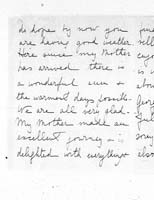 do hope by now you
are having good weather.
Here since my Mother
has arrived there is
a wonderful sun &
the warmest days possible.
We are all very glad.
My Mother made an
excellent journey & is
delighted with everything
also